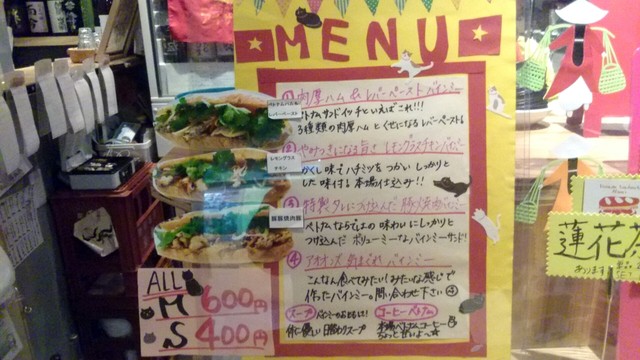 MENU
① 肉厚ハム & レバーペースト バインミー
ベトナムサンドイッチといえばこれ!!!
3種類の肉厚ハムとくせになるレバーペースト♪
② やみつきになる旨さ レモングラスチキンバインミー
かくし味でハチミツをつかい しっかりと
した味付る 本場仕込み!!
③ 特製タレにつけ込んだ 豚焼肉バインミー
ベトナムならではの味わいにしっかりと
つけ込んだ ボリューミーなバインミーサンド!
④ アオオンズ 気まぐれ バインミー
こんなん食べてみたい!みたいな感じで
作ったバインミー。問い合わせ下さい
スープ バインミーのおともに!
体に優しい 日替わりスープ
コーヒー ベトナム
本場ベトナムコーヒー
ちょっと甘いよ〜☆
ベトナムハム&
レバーペースト
レモングラス
チキン
豚焼肉
ALL
M 600円
S 400円
蓮花茶
あります